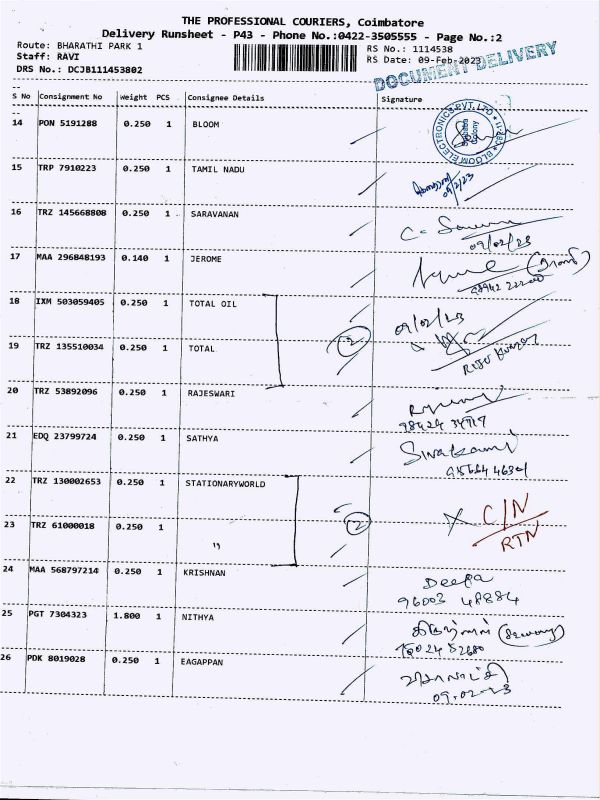 THE PROFESSIONAL COURIERS, Coimbatore
Delivery Runsheet - P43 - Phone No.:0422-3505555 - Page No.:2
Route: BHARATHI PARK 1
RS No.: 1114538
Staff: RAVI
RS Date: 09-Feb-2023
DRS No.: DCJB111453802
DOCUMENT DELIVERY
S No Consignment No Weight PCS Consignee Details Signature
14 PON 5191288 0.250 1 BLOOM
BLOOM ELECTRONICS PVT. LTD
15 TRP 7910223 0.250 1 TAMIL NADU
09/2/23
16 TRZ 145668808 0.250 1 SARAVANAN
09/02/23
17 MAA 296848193 0.140 1 JEROME
18 IXM 503059405 0.250 1 TOTAL OIL
09/02/23
2
19 TRZ 135510034 0.250 1 TOTAL
20 TRZ 53892096 0.250 1 RAJESWARI
21 EDQ 23799724 0.250 1 SATHYA
Sivakami
22 TRZ 130002653 0.250 1 STATIONARYWORLD
C/N
RTN
2
23 TRZ 61000018 0.250 1 "
24 MAA 568797214 0.250 1 KRISHNAN
Deepa
96003 48884
25 PGT 7304323 1.800 1 NITHYA
26 PDK 8019028 0.250 1 EAGAPPAN